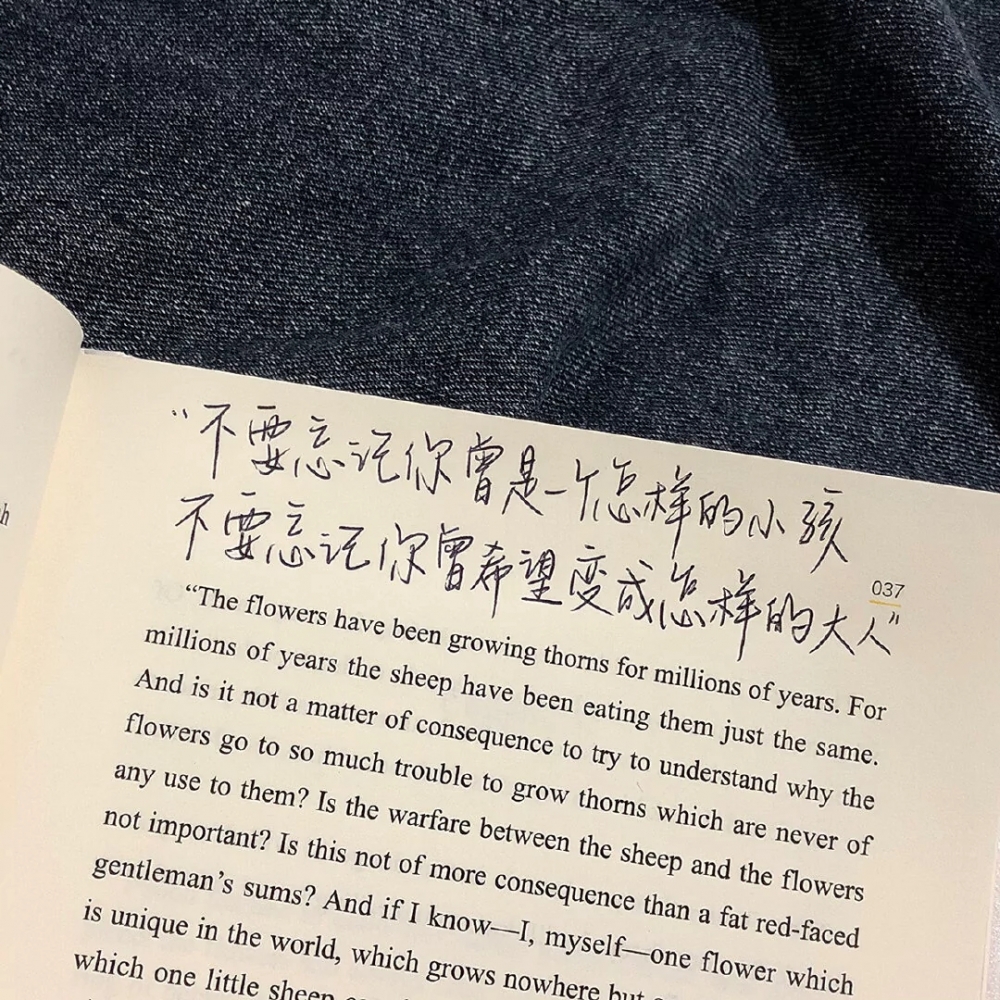 “不要忘记你曾是一个怎样的小孩
不要忘记你曾希望变成怎样的大人”
037
“The flowers have been growing thorns for millions of years. For
millions of years the sheep have been eating them just the same.
And is it not a matter of consequence to try to understand why the
flowers go to so much trouble to grow thorns which are never of
any use to them? Is the warfare between the sheep and the flowers
not important? Is this not of more consequence than a fat red-faced
gentleman’s sums? And if I know—I, myself—one flower which
is unique in the world, which grows nowhere but
which one little sheep